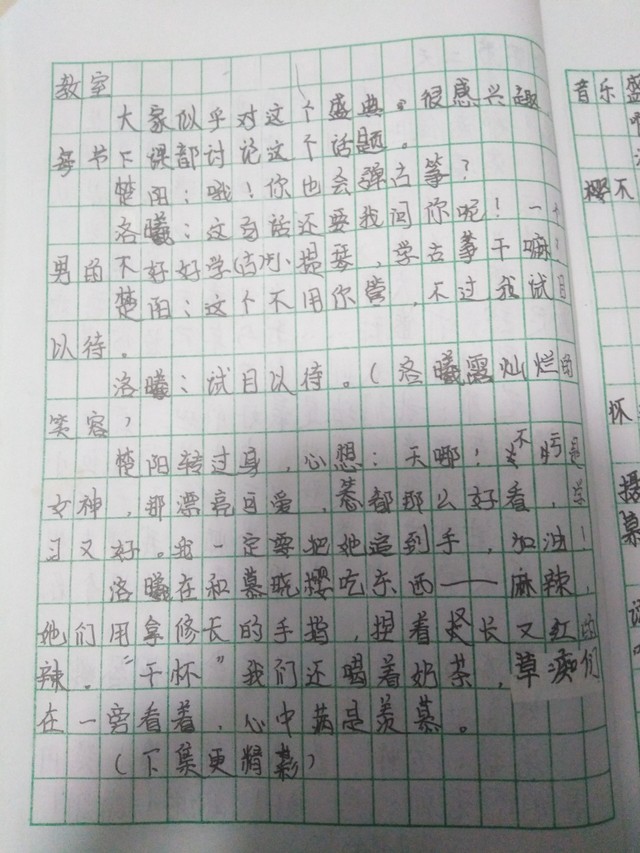 教室
大家似乎对这个盛典。很感兴趣
每节下课都讨论这个话题。
楚阳：哦！你也会弹古筝？
洛曦：这句话还要我问你呢！一个
男的不好好学小提琴，学古筝干嘛！
楚阳：这个不用你管，不过我试目
以待。
洛曦：试目以待。（洛曦露灿烂的
笑容）
楚阳转过身，心想：天哪！不亏是
女神，那漂亮可爱，都那么好看，学
习又好。我一定要把她追到手，加油！
洛曦在和慕晓樱吃东西——麻辣，
她们用拿修长的手指，捏着长又红的
辣。“干杯”我们还喝着奶茶，草痴们
在一旁看着，心中满是羡慕。
（下集更精彩）
音乐盛
樱不
怀
摄
慕